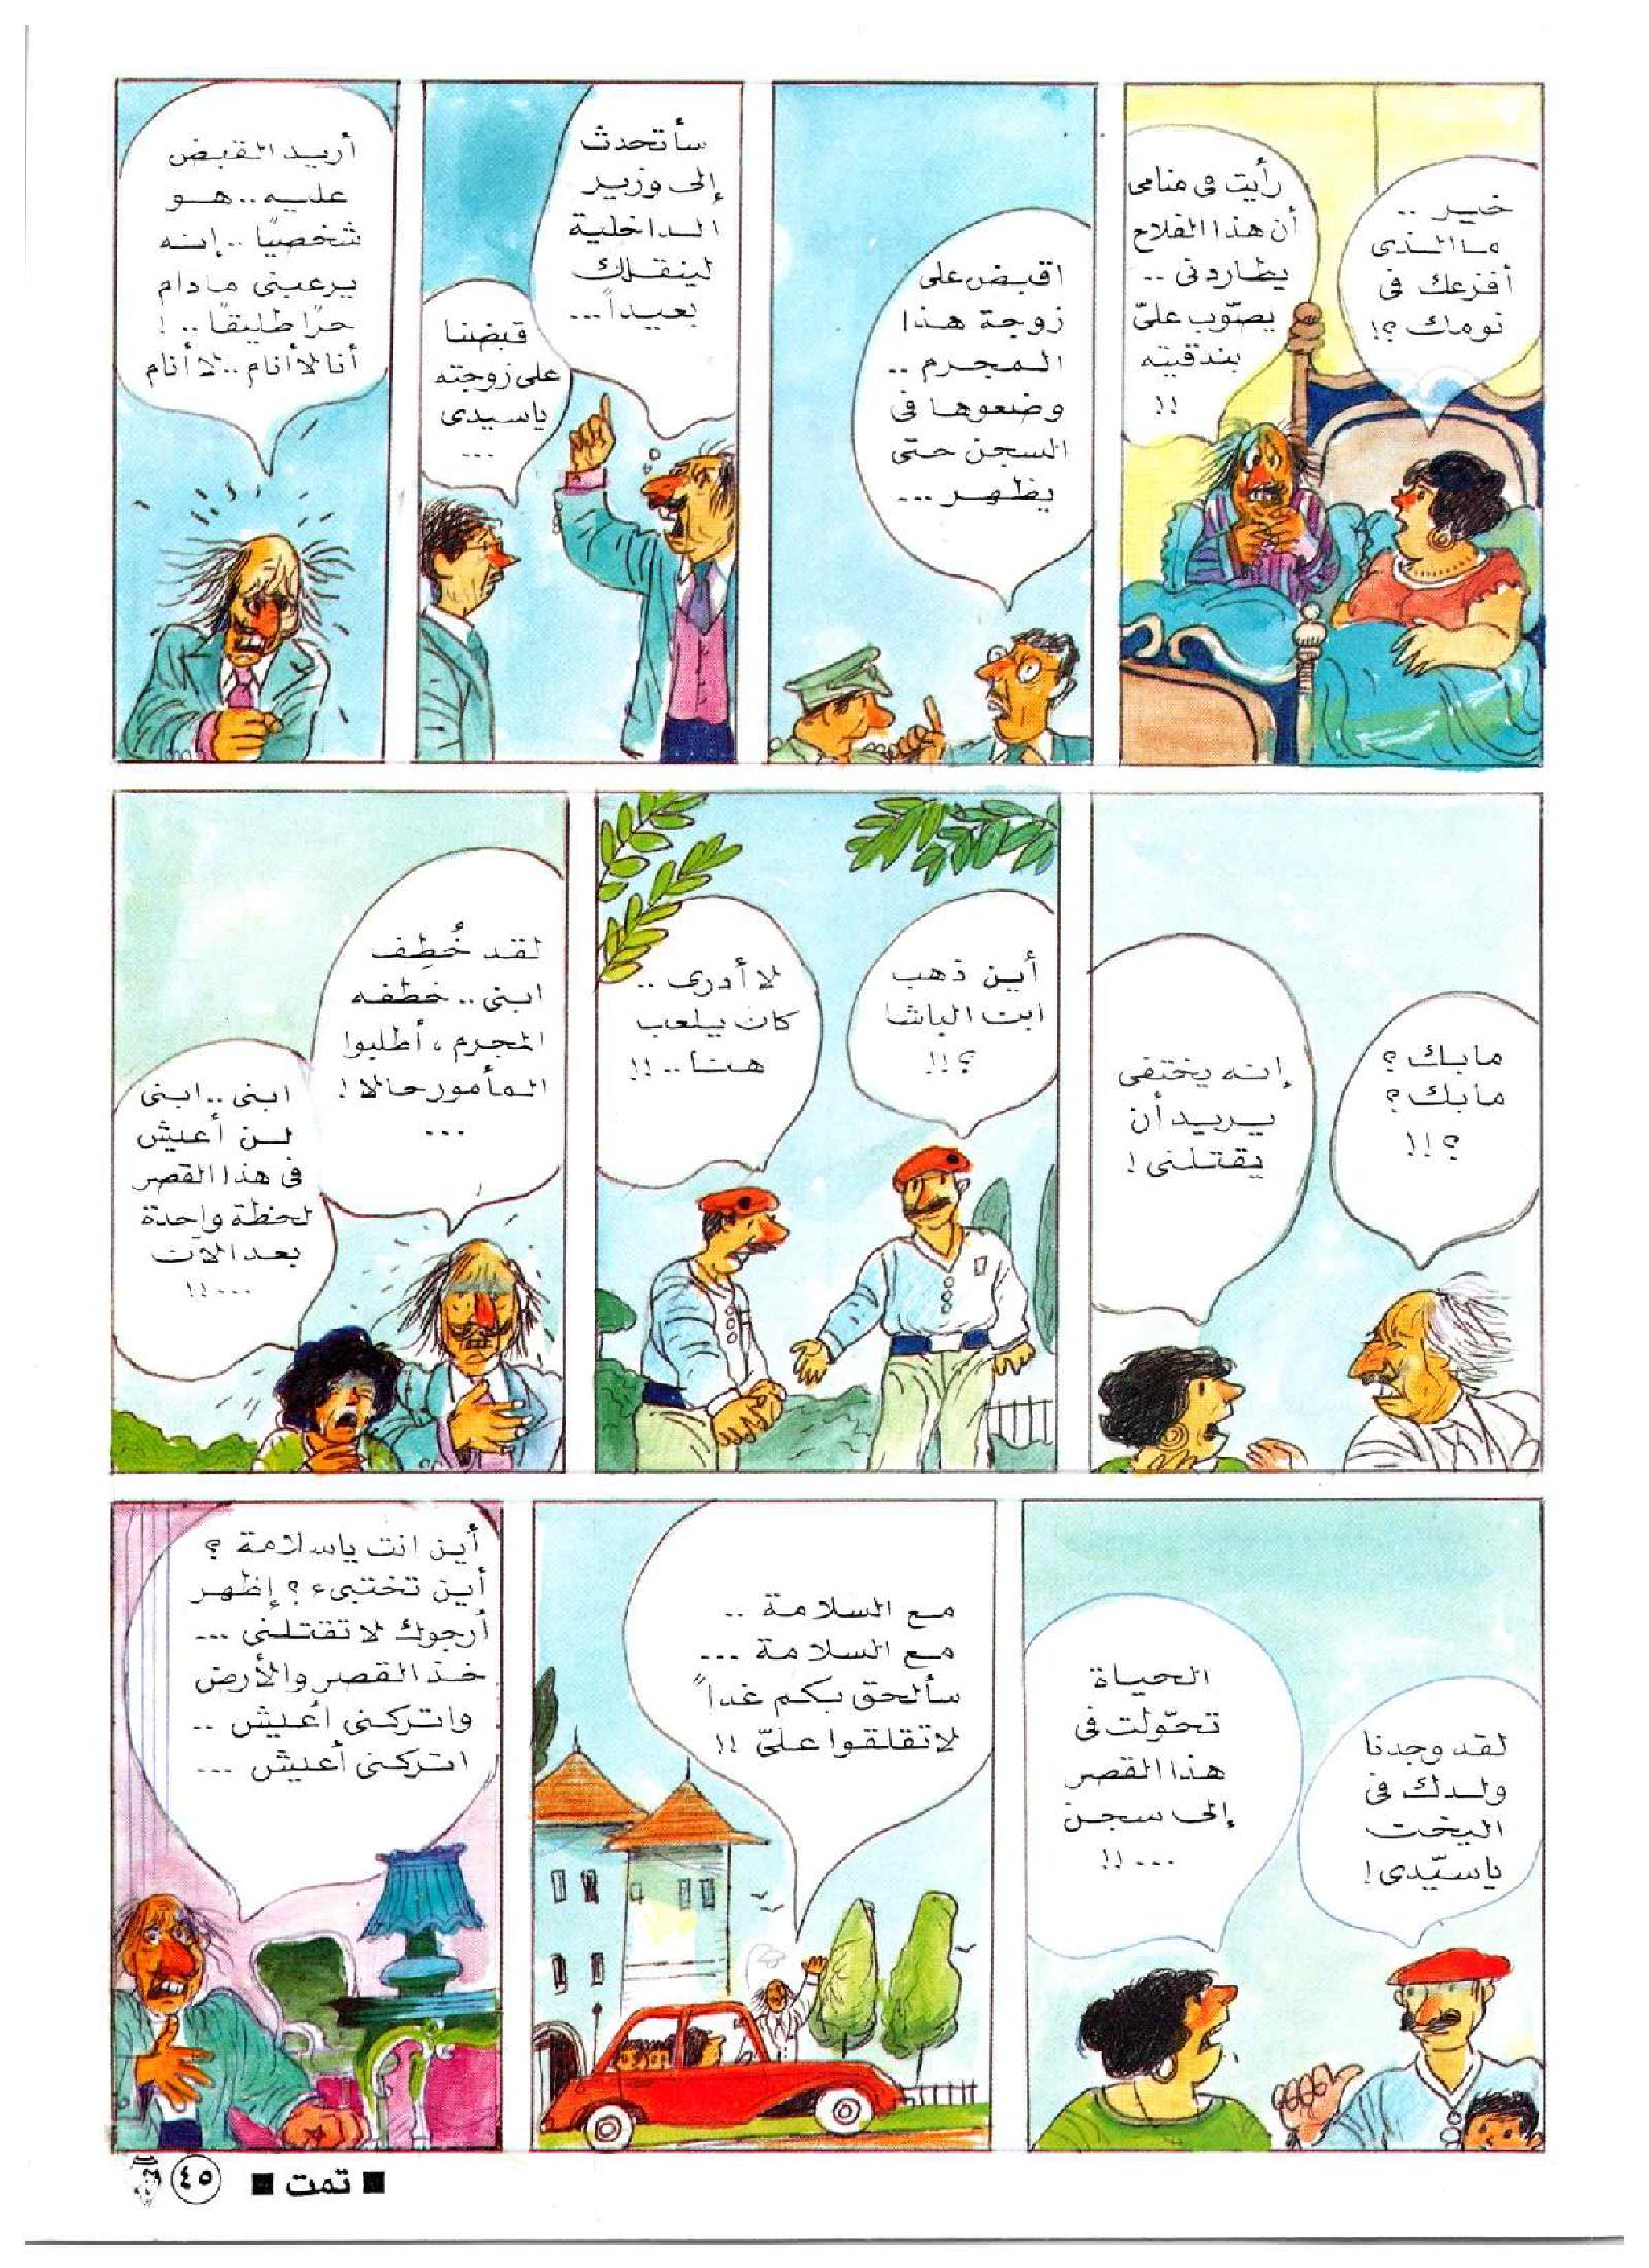 خير ..
ما الذى
أفزعك فى
نومك ؟!
رأيت فى منامى
أن هذا الفلاح
يطاردنى ..
يصوّب علىّ
بندقيته
!!
اقبض على
زوجة هذا
المجرم ..
وضعوها فى
السجن حتى
يظهر ...
سأتحدث
إلى وزير
الداخلية
لينقلك
بعيداً ...
قبضنا
على زوجته
ياسيدى
...
أريد القبض
عليه .. هو
شخصيًا .. إنه
يرعبنى مادام
حرًا طليقًا .. !
أنا لا أنام .. لا أنام
مابك ؟
مابك ؟
؟ !!
إنه يختفى
يريد أن
يقتلنى !
أين ذهب
ابن الباشا
؟ !!
لا أدرى ..
كان يلعب
هنا .. !!
لقد خُطِف
ابنى .. خطفه
المجرم ، أطلبوا
المأمور حالا !
...
ابنى .. ابنى
لن أعيش
فى هذا القصر
لحظة واحدة
بعد الآن
... !!
لقد وجدنا
ولدك فى
اليخت
ياسيّدى !
الحياة
تحوّلت فى
هذا القصر
إلى سجن
... !!
مع السلامة ..
مع السلامة ...
سألحق بكم غداً
لاتقلقوا علىّ !!
أين انت ياسلامة ؟
أين تختبىء ؟ إظهر
أرجوك لا تقتلنى ...
خذ القصر والأرض
واتركنى أعيش ..
اتركنى أعيش ...
■ تمت ■
٤٥